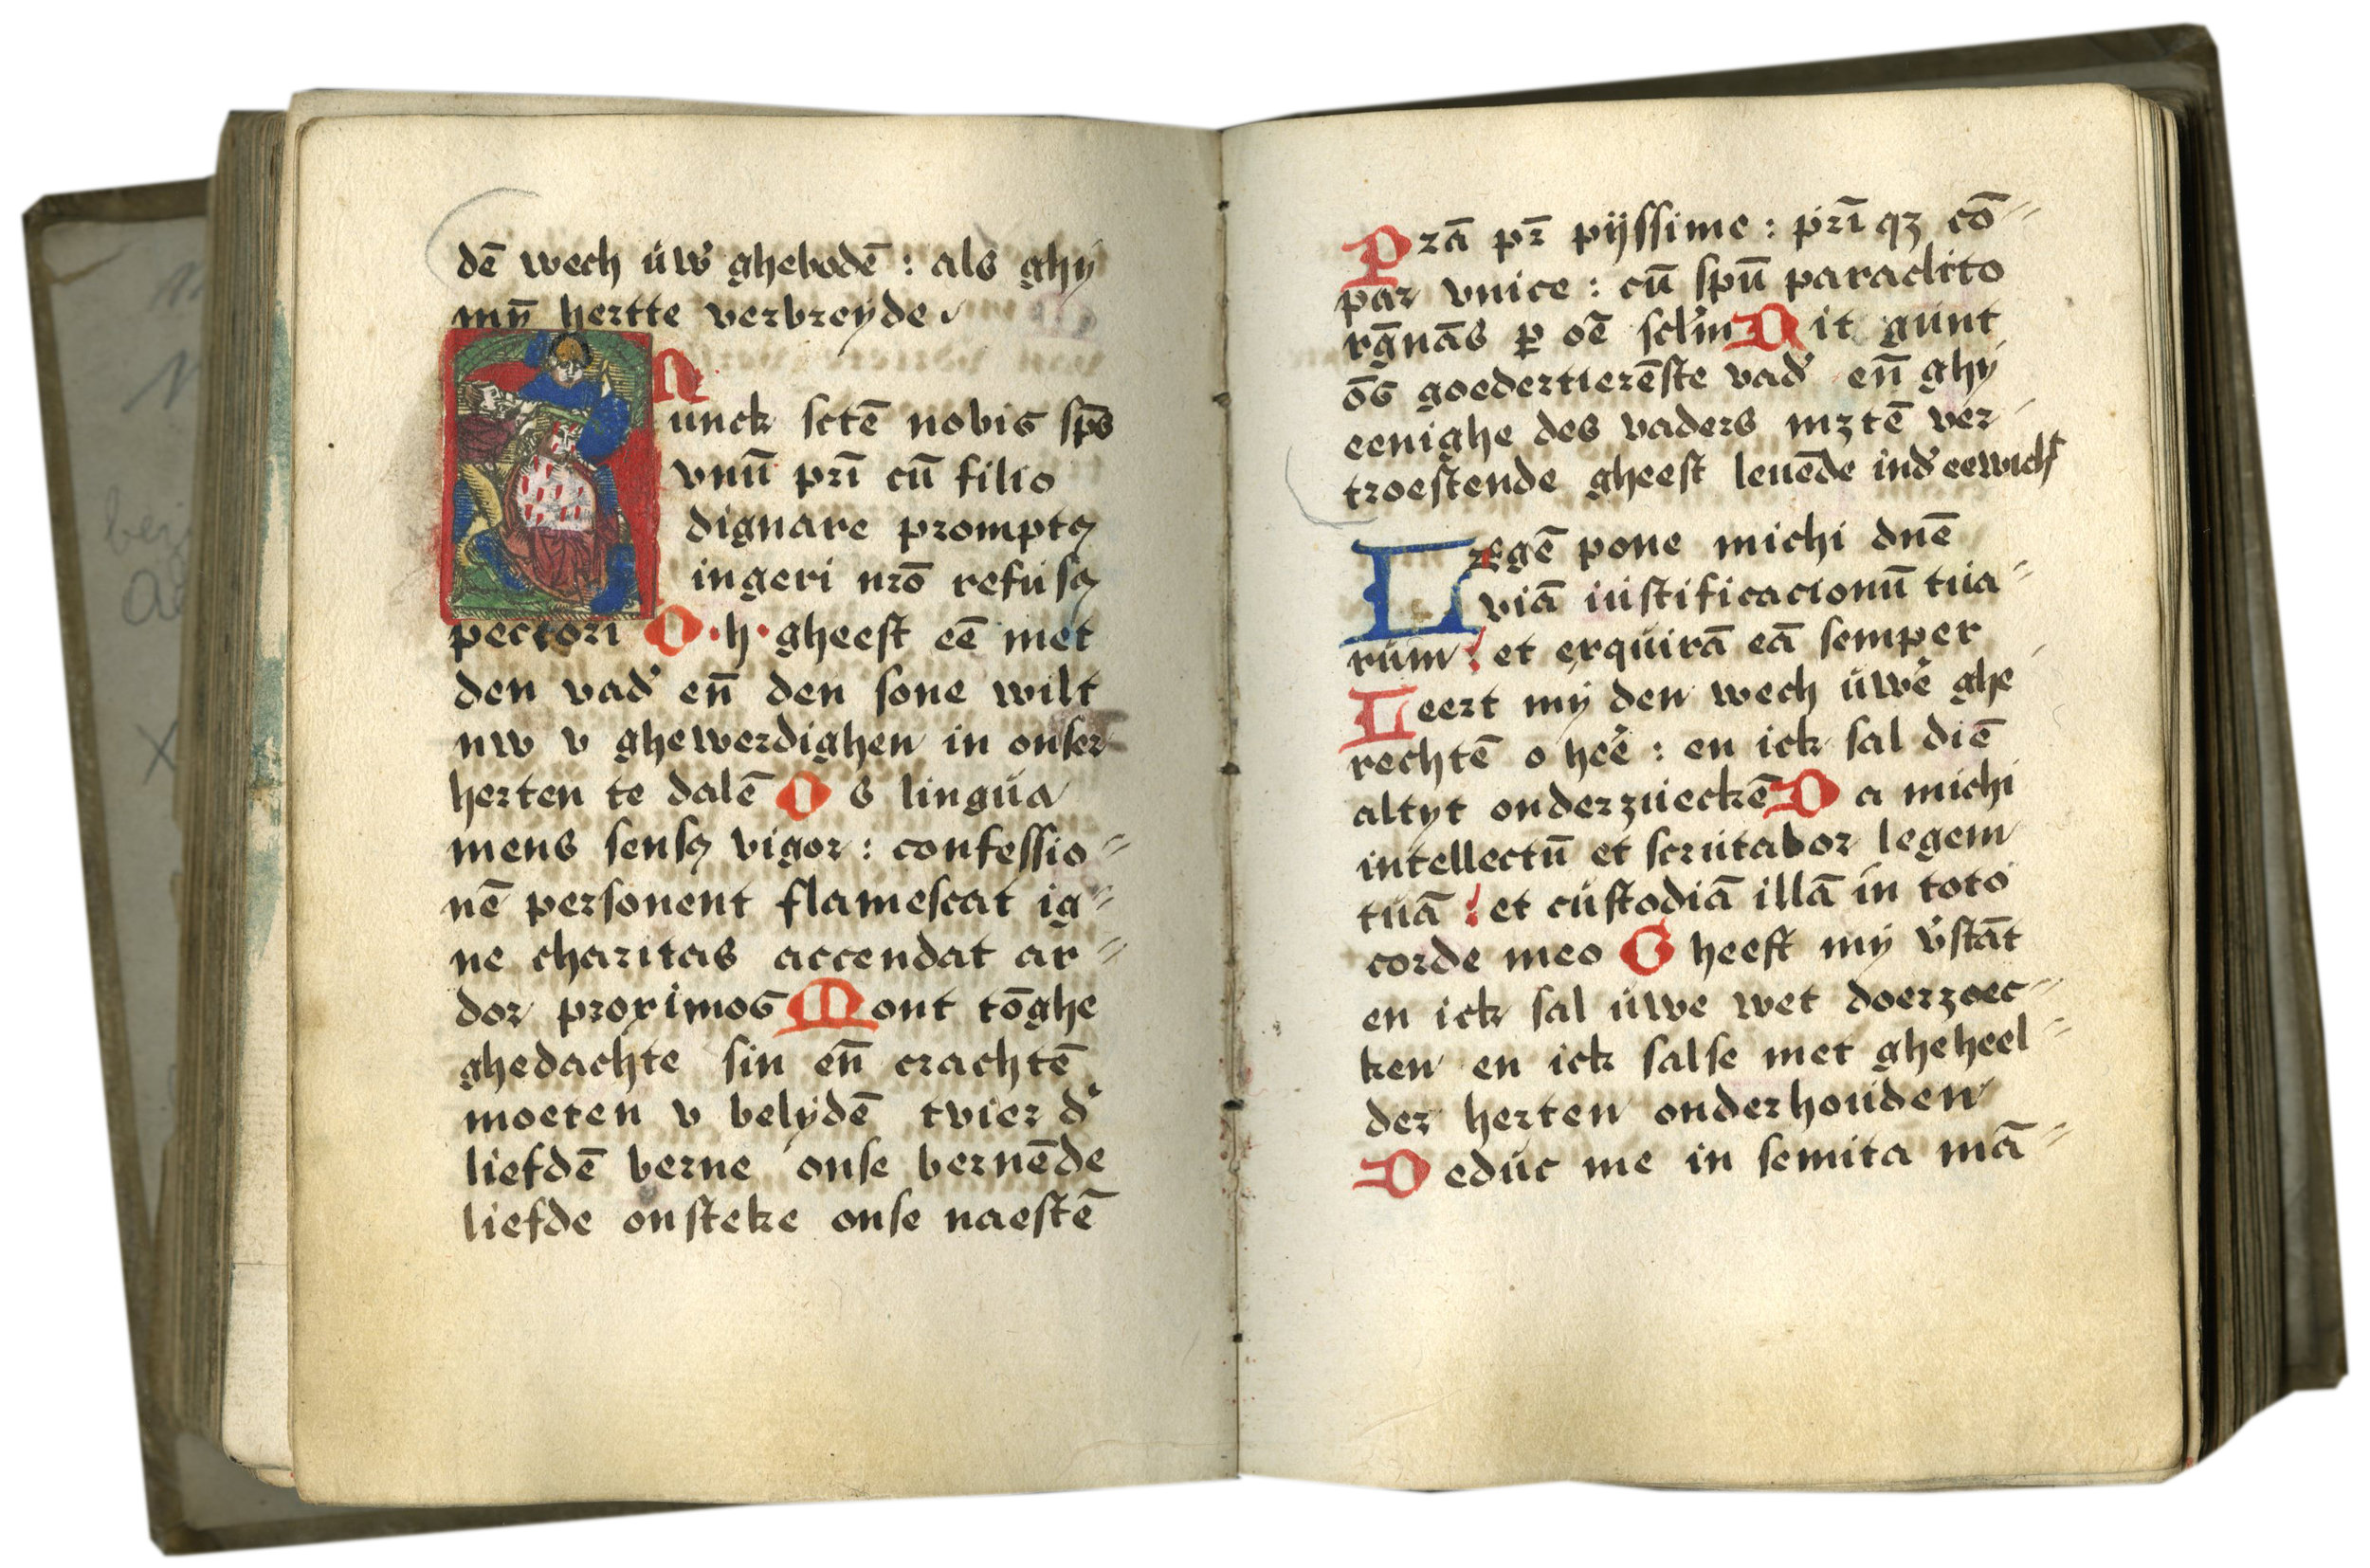 dē wech uw̉ ghebodē : als ghy
mȳ hertte verbreyde
N
unck sctē nobis sp̄s
vnū pr̄i cū filio
dignare promptꝯ
ingeri nr̄o refusꝯ
pectori O · h · gheest eē met
den vad̉ en̄ den sone wilt
nw v ghewerdighen in onser
herten te dalē O s lingua
mens sensꝯ vigor : confessio
nē personent flamescat ig
ne charitas accendat ar
dor proximos Mont tōghe
ghedachte sin en̄ crachtē
moeten v belydē tvier d̉
liefdē berne onse bernēde
liefde onsteke onse naestē
Przā pr̄ pijssime : pr̄i qz cō
par vnice : cū spū paraclito
rḡnās ꝑ oē sclm̉ Dit gunt
ōs goedertierēste vad̉ en̄ ghy
eenighe des vaders mztē ver
troestende gheest leuēde ind̉ eewich̉t
Legē pone michi dnē
viā iustificacionū tua
rum : et exquirā eā semper
Leert my den wech uwē̉ ghe
rechtē o heē̉ : en ick sal diē
altyt onderzueckē Da michi
intellectū et scrutabor legem
tuā : et custodiā illā in toto
corde meo Gheeft my v̉stāt
en ick sal uwe wet doerzoec
ken en ick salse met gheheel
der herten onderhouden
Deduc me in semita mā